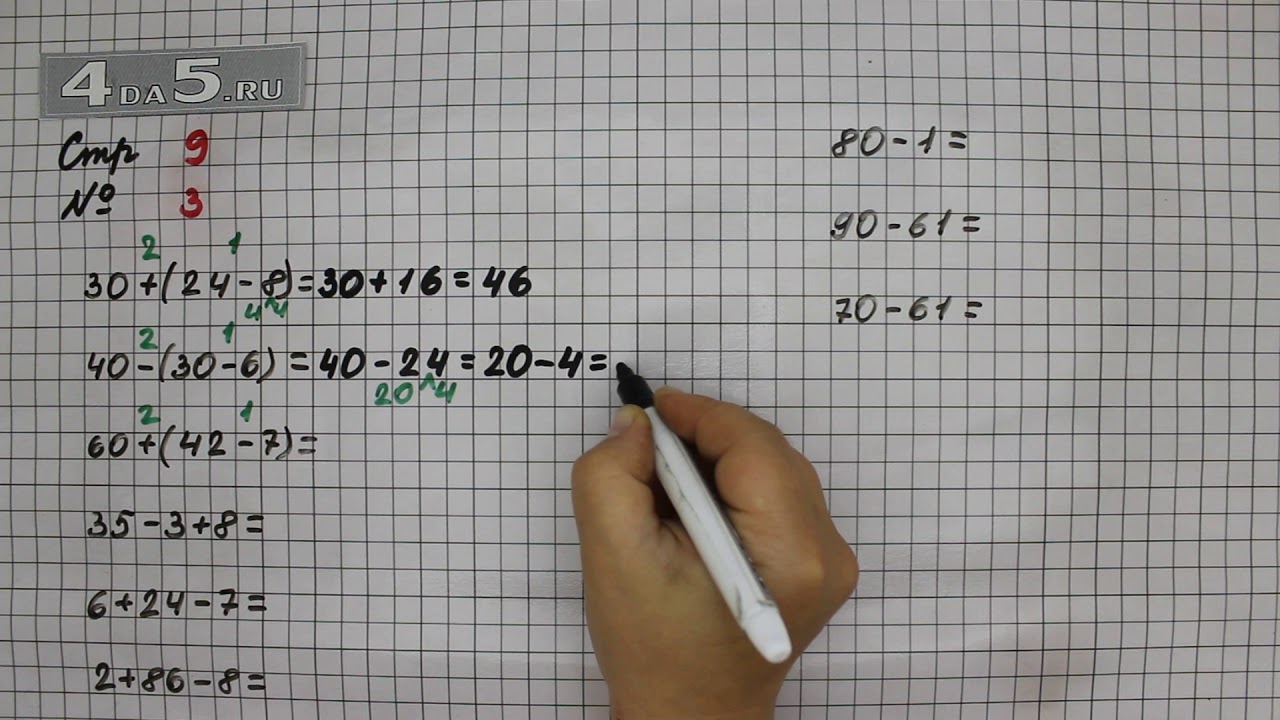 4DA5.RU
Стр 9
№ 3
2 1
30+(24-8)=30+16=46
4 4
2 1
40-(30-6)=40-24=20-4=
20 4
2 1
60+(42-7)=
35-3+8=
6+24-7=
2+86-8=
80-1=
90-61=
70-61=